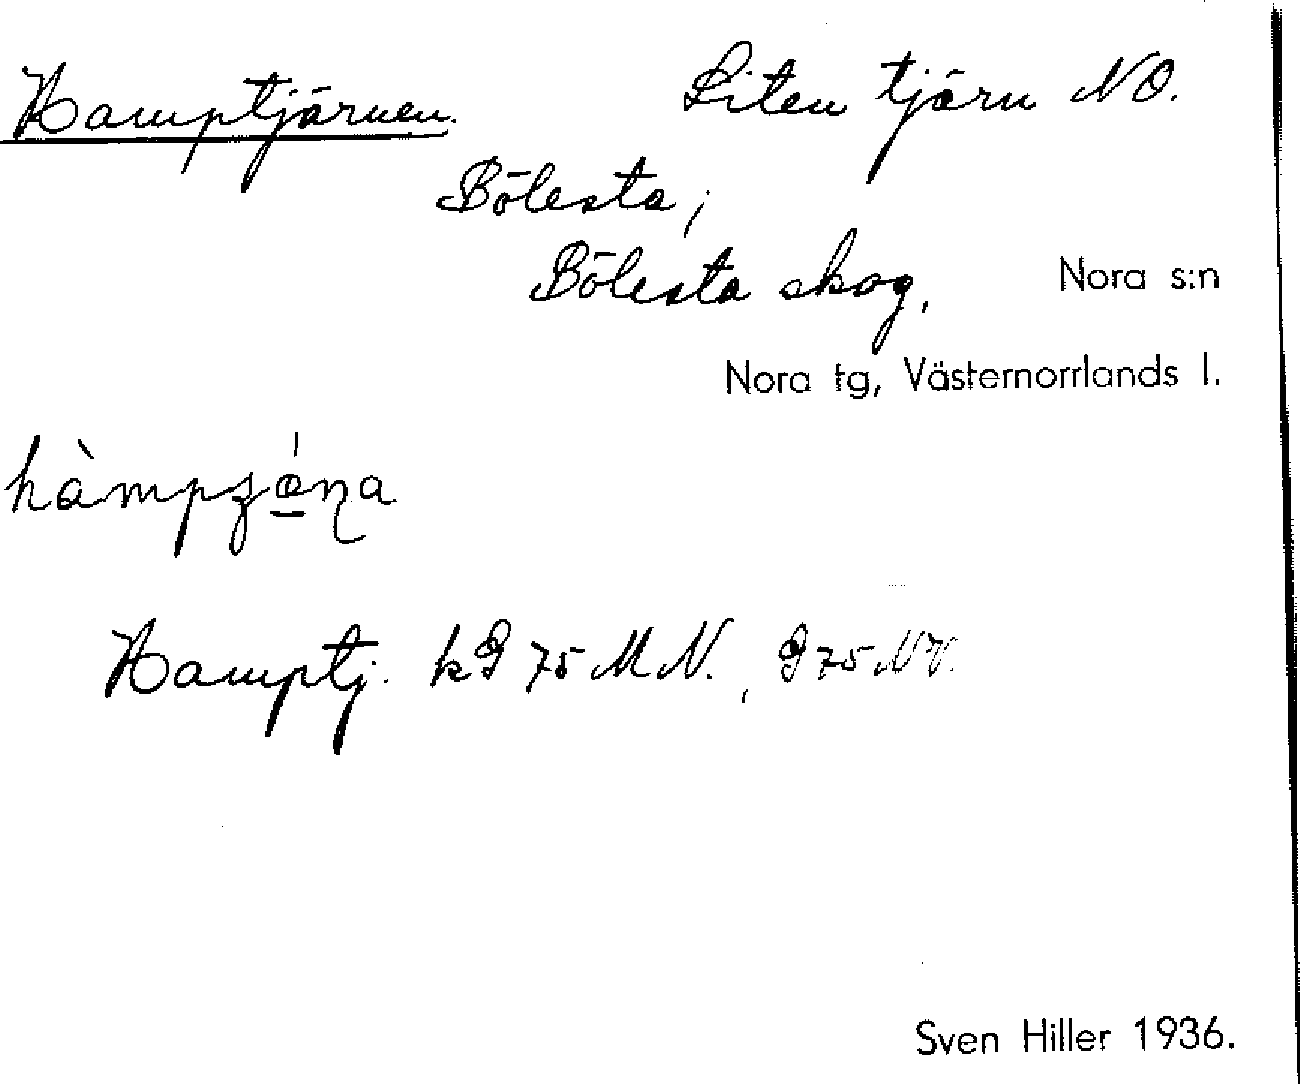 Hamptjärnen. Liten tjärn NO.
Bölesta;
Bölesta skog, Nora s:n
Nora tg, Västernorrlands l.
Hamptj. kG 75 MN., G 75 NV.
Sven Hiller 1936.